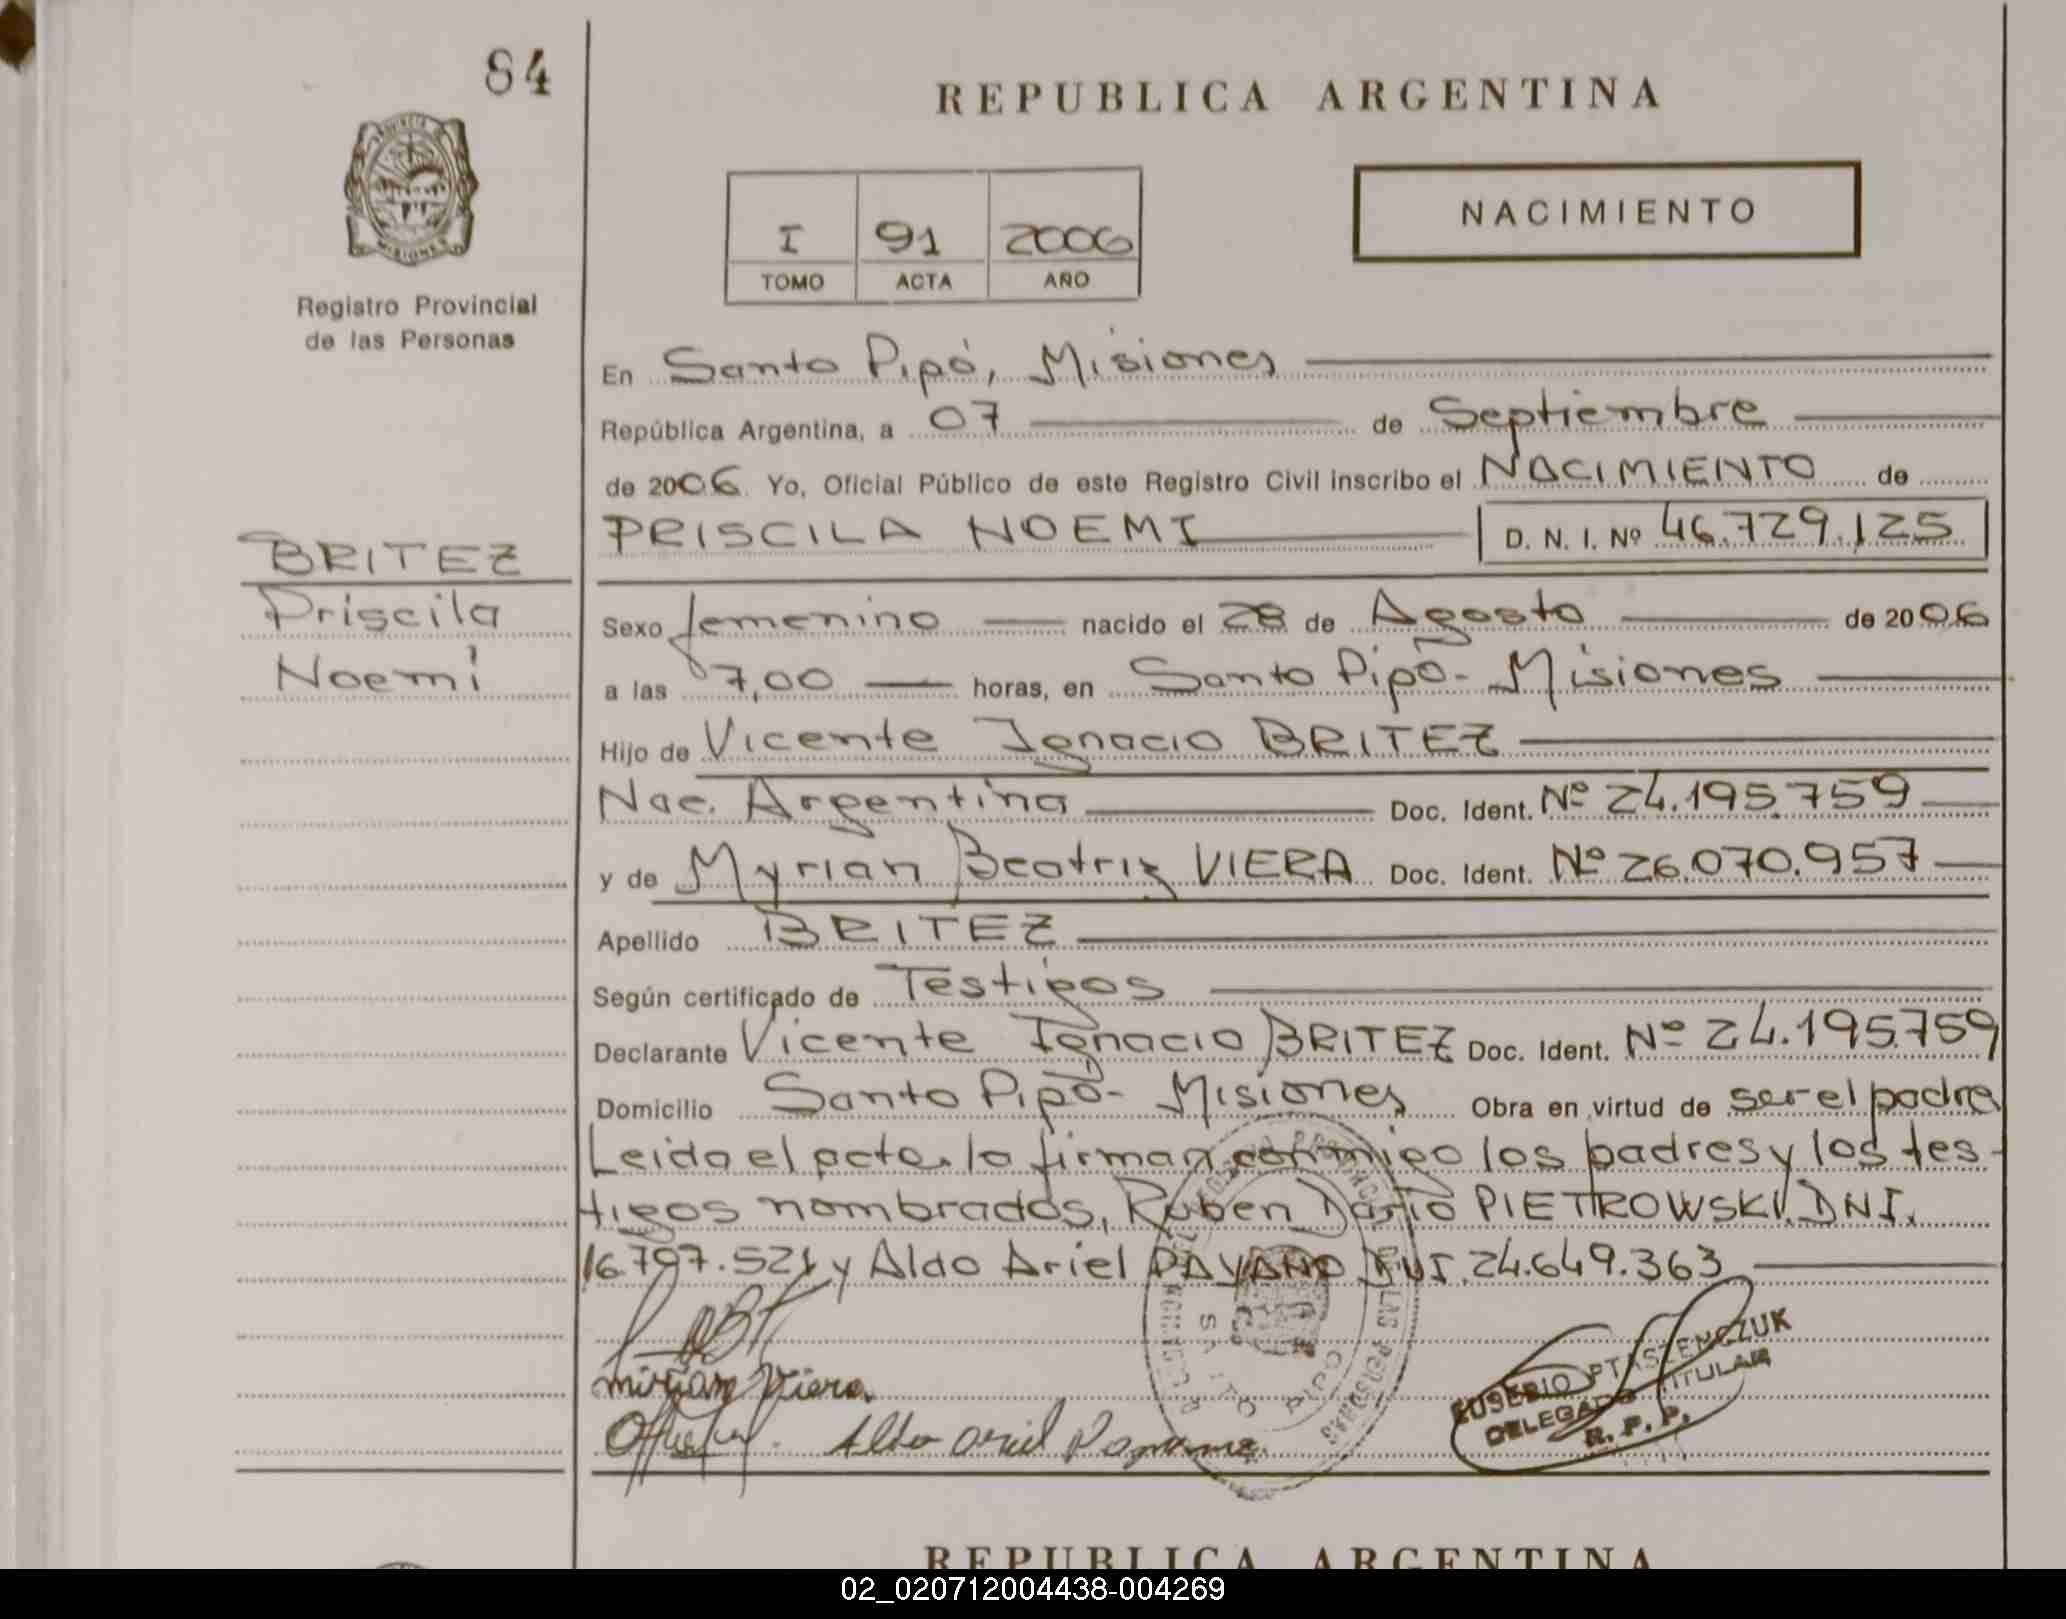 84
PROVINCIA DE
MISIONES
Registro Provincial
de las Personas
REPUBLICA ARGENTINA
I 91 2006
TOMO ACTA AÑO
NACIMIENTO
En Santo Pipó, Misiones
República Argentina, a 07 de Septiembre
de 2006 Yo, Oficial Público de este Registro Civil inscribo el NACIMIENTO de
PRISCILA NOEMI D. N. I. Nº 46.729.125
BRITEZ
Priscila
Noemi
Sexo femenino nacido el 28 de Agosto de 2006
a las 7,00 horas, en Santo Pipó- Misiones
Hijo de Vicente Ignacio BRITEZ
Nac. Argentina Doc. Ident. Nº 24.195.759
y de Myrian Beatriz VIERA Doc. Ident. Nº 26.070.957
Apellido BRITEZ
Según certificado de Testigos
Declarante Vicente Ignacio BRITEZ Doc. Ident. Nº 24.195.759
Domicilio Santo Pipó- Misiones Obra en virtud de ser el padre
Leida el acta, la firman conmigo los padres y los tes-
tigos nombrados, Ruben Dario PIETROWSKI, DNI.
16.797.521 y Aldo Ariel DNI. 24.649.363
Viera
Aldo Ariel
SANTO PIPO
EUSEBIO PTASZENCZUK
DELEGADO TITULAR
R. P. P.
REPUBLICA ARGENTINA
02_020712004438-004269